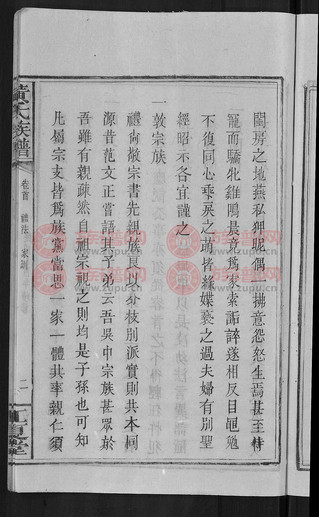 閨房之地燕私狎昵偶一拂意怨怒生焉甚至恃
寵而驕牝雞鳴晨竟為家索詬誶遂相反目黽勉
不復同心乖戾之萌皆緣媟褻之過夫婦有別聖
經昭示各宜謹之
一敦宗族
禮尚敬宗書先親族良以分枝別派實則共本同
源昔范文正嘗語其子弟云吾吳中宗族甚眾於
吾雖有親疎然自祖宗視之則均是子孫也可知
凡屬宗支皆為族黨當思一家一體共率親仁須
黃氏族譜
卷首
禮法 家訓
二